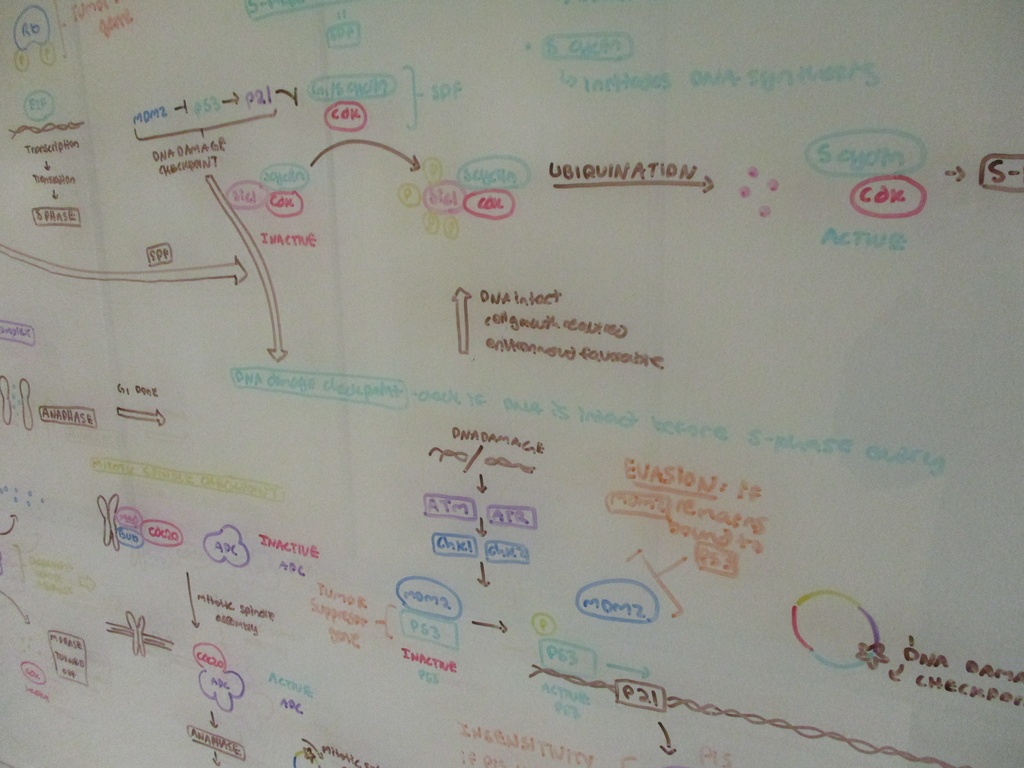 Rb
P P
TUMOR
GENE
E2F
Transcription
Translation
S PHASE
MDM2 P53 P21
DNA DAMAGE
CHECKPOINT
G1/S cyclin
CDK
SPF
S cyclin
↳ initiates DNA synthesis
S cyclin
Sic1 CDK
INACTIVE
P
P Sic1 S cyclin
CDK
P P
UBIQUINATION
S cyclin
CDK
ACTIVE
S-
SPF
DNA intact
cell growth required
environment favourable
DNA damage checkpoint - check if DNA is intact before S-phase entry
ANAPHASE
G1 DONE
MITOTIC SPINDLE CHECKPOINT
MAD
BUB
CDC20
APC
INACTIVE
APC
Mitotic spindle
assembly
CDC20
APC
ACTIVE
APC
ANAPHASE
M PHASE
TURNED
OFF
CDK
DNA DAMAGE
ATM ATR
Chk1 Chk2
MDM2
P53
INACTIVE
P53
TUMOR
SUPPRESSOR
GENE
EVASION: if
MDM2 remains
bound to
P53
MDM2
P
P53
ACTIVE
P53
P21
DNA DAMA
CHECKPOI
INSENSITIVITY
Mitotic